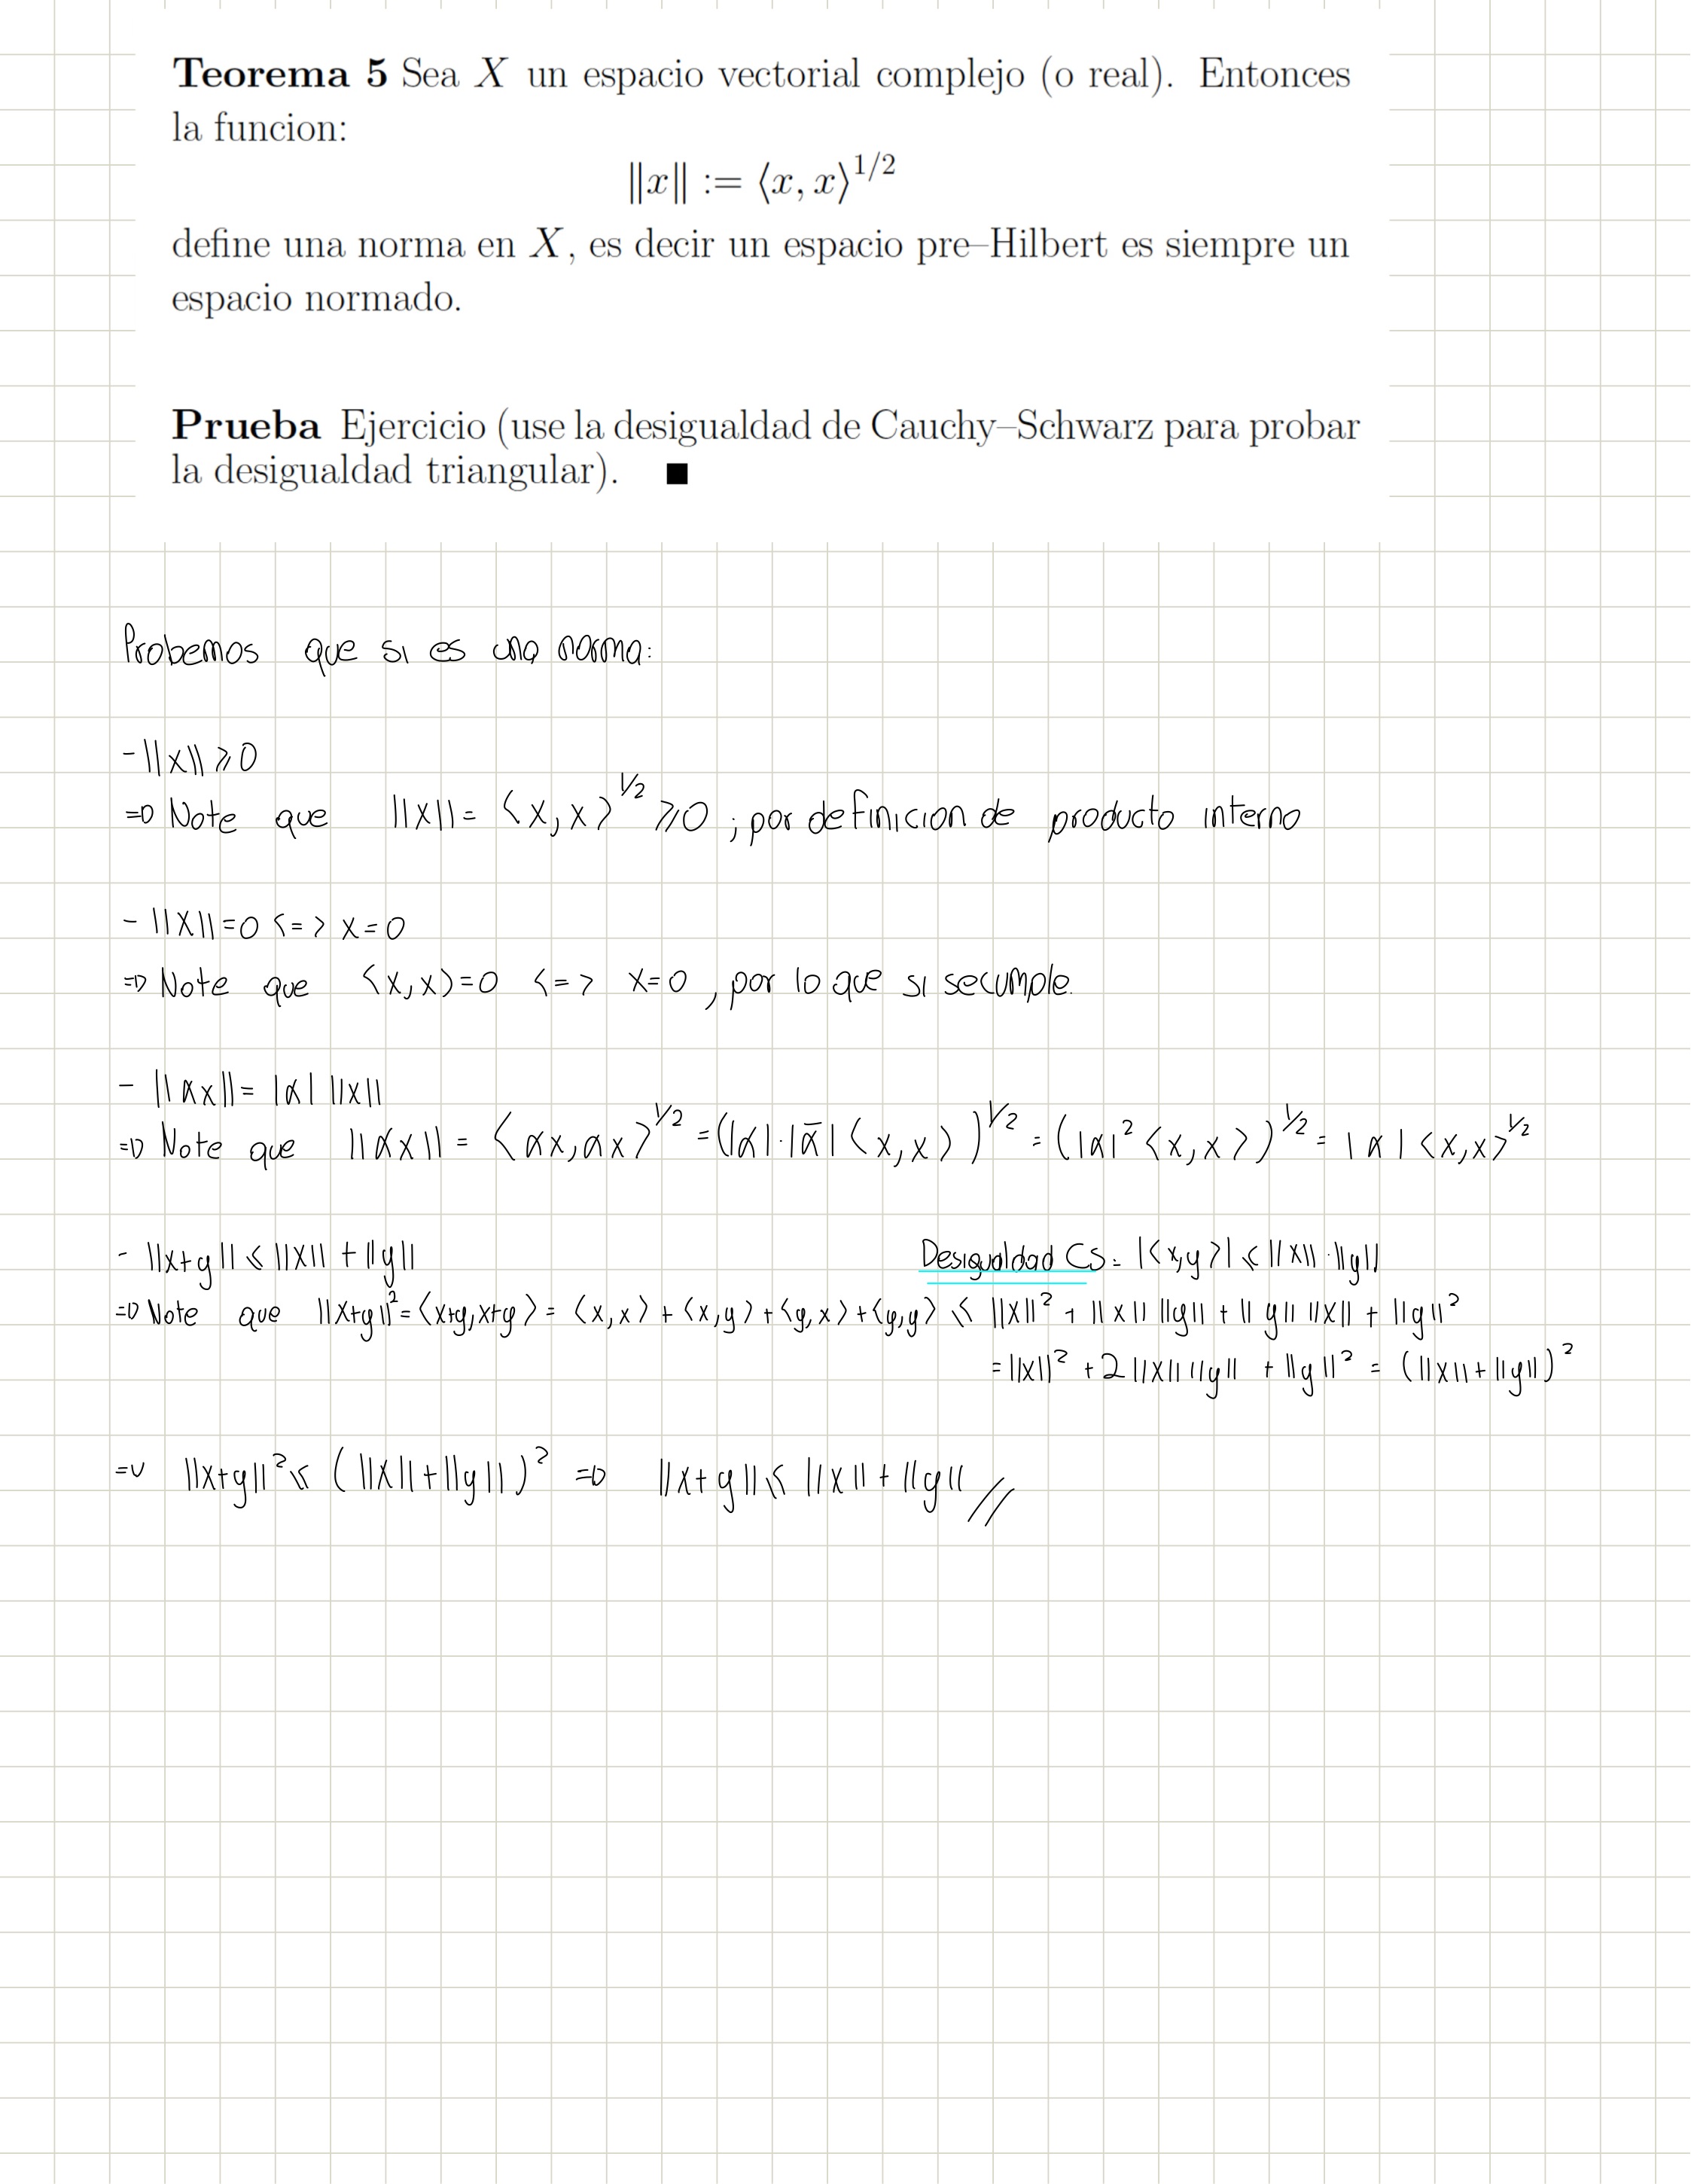 Teorema 5 Sea X un espacio vectorial complejo (o real). Entonces
la funcion:
‖x‖ := ⟨x, x⟩^{1/2}
define una norma en X, es decir un espacio pre–Hilbert es siempre un
espacio normado.
Prueba Ejercicio (use la desigualdad de Cauchy–Schwarz para probar
la desigualdad triangular). ■
Probemos que si es una norma:
- ||x|| ≥ 0
=> Note que ||x|| = <x, x>^{1/2} ≥ 0 ; por definicion de producto interno
- ||x|| = 0 <=> x = 0
=> Note que <x, x> = 0 <=> x = 0, por lo que si se cumple.
- ||αx|| = |α| ||x||
=> Note que ||αx|| = <αx, αx>^{1/2} = (|α|·|ᾱ| <x, x>)^{1/2} = (|α|² <x, x>)^{1/2} = |α| <x, x>^{1/2}
- ||x+y|| ≤ ||x|| + ||y|| Desigualdad CS = |<x, y>| ≤ ||x||·||y||
=> Note que ||x+y||² = <x+y, x+y> = <x, x> + <x, y> + <y, x> + <y, y> ≤ ||x||² + ||x|| ||y|| + ||y|| ||x|| + ||y||²
= ||x||² + 2||x|| ||y|| + ||y||² = (||x|| + ||y||)²
=> ||x+y||² ≤ (||x|| + ||y||)² => ||x+y|| ≤ ||x|| + ||y|| //